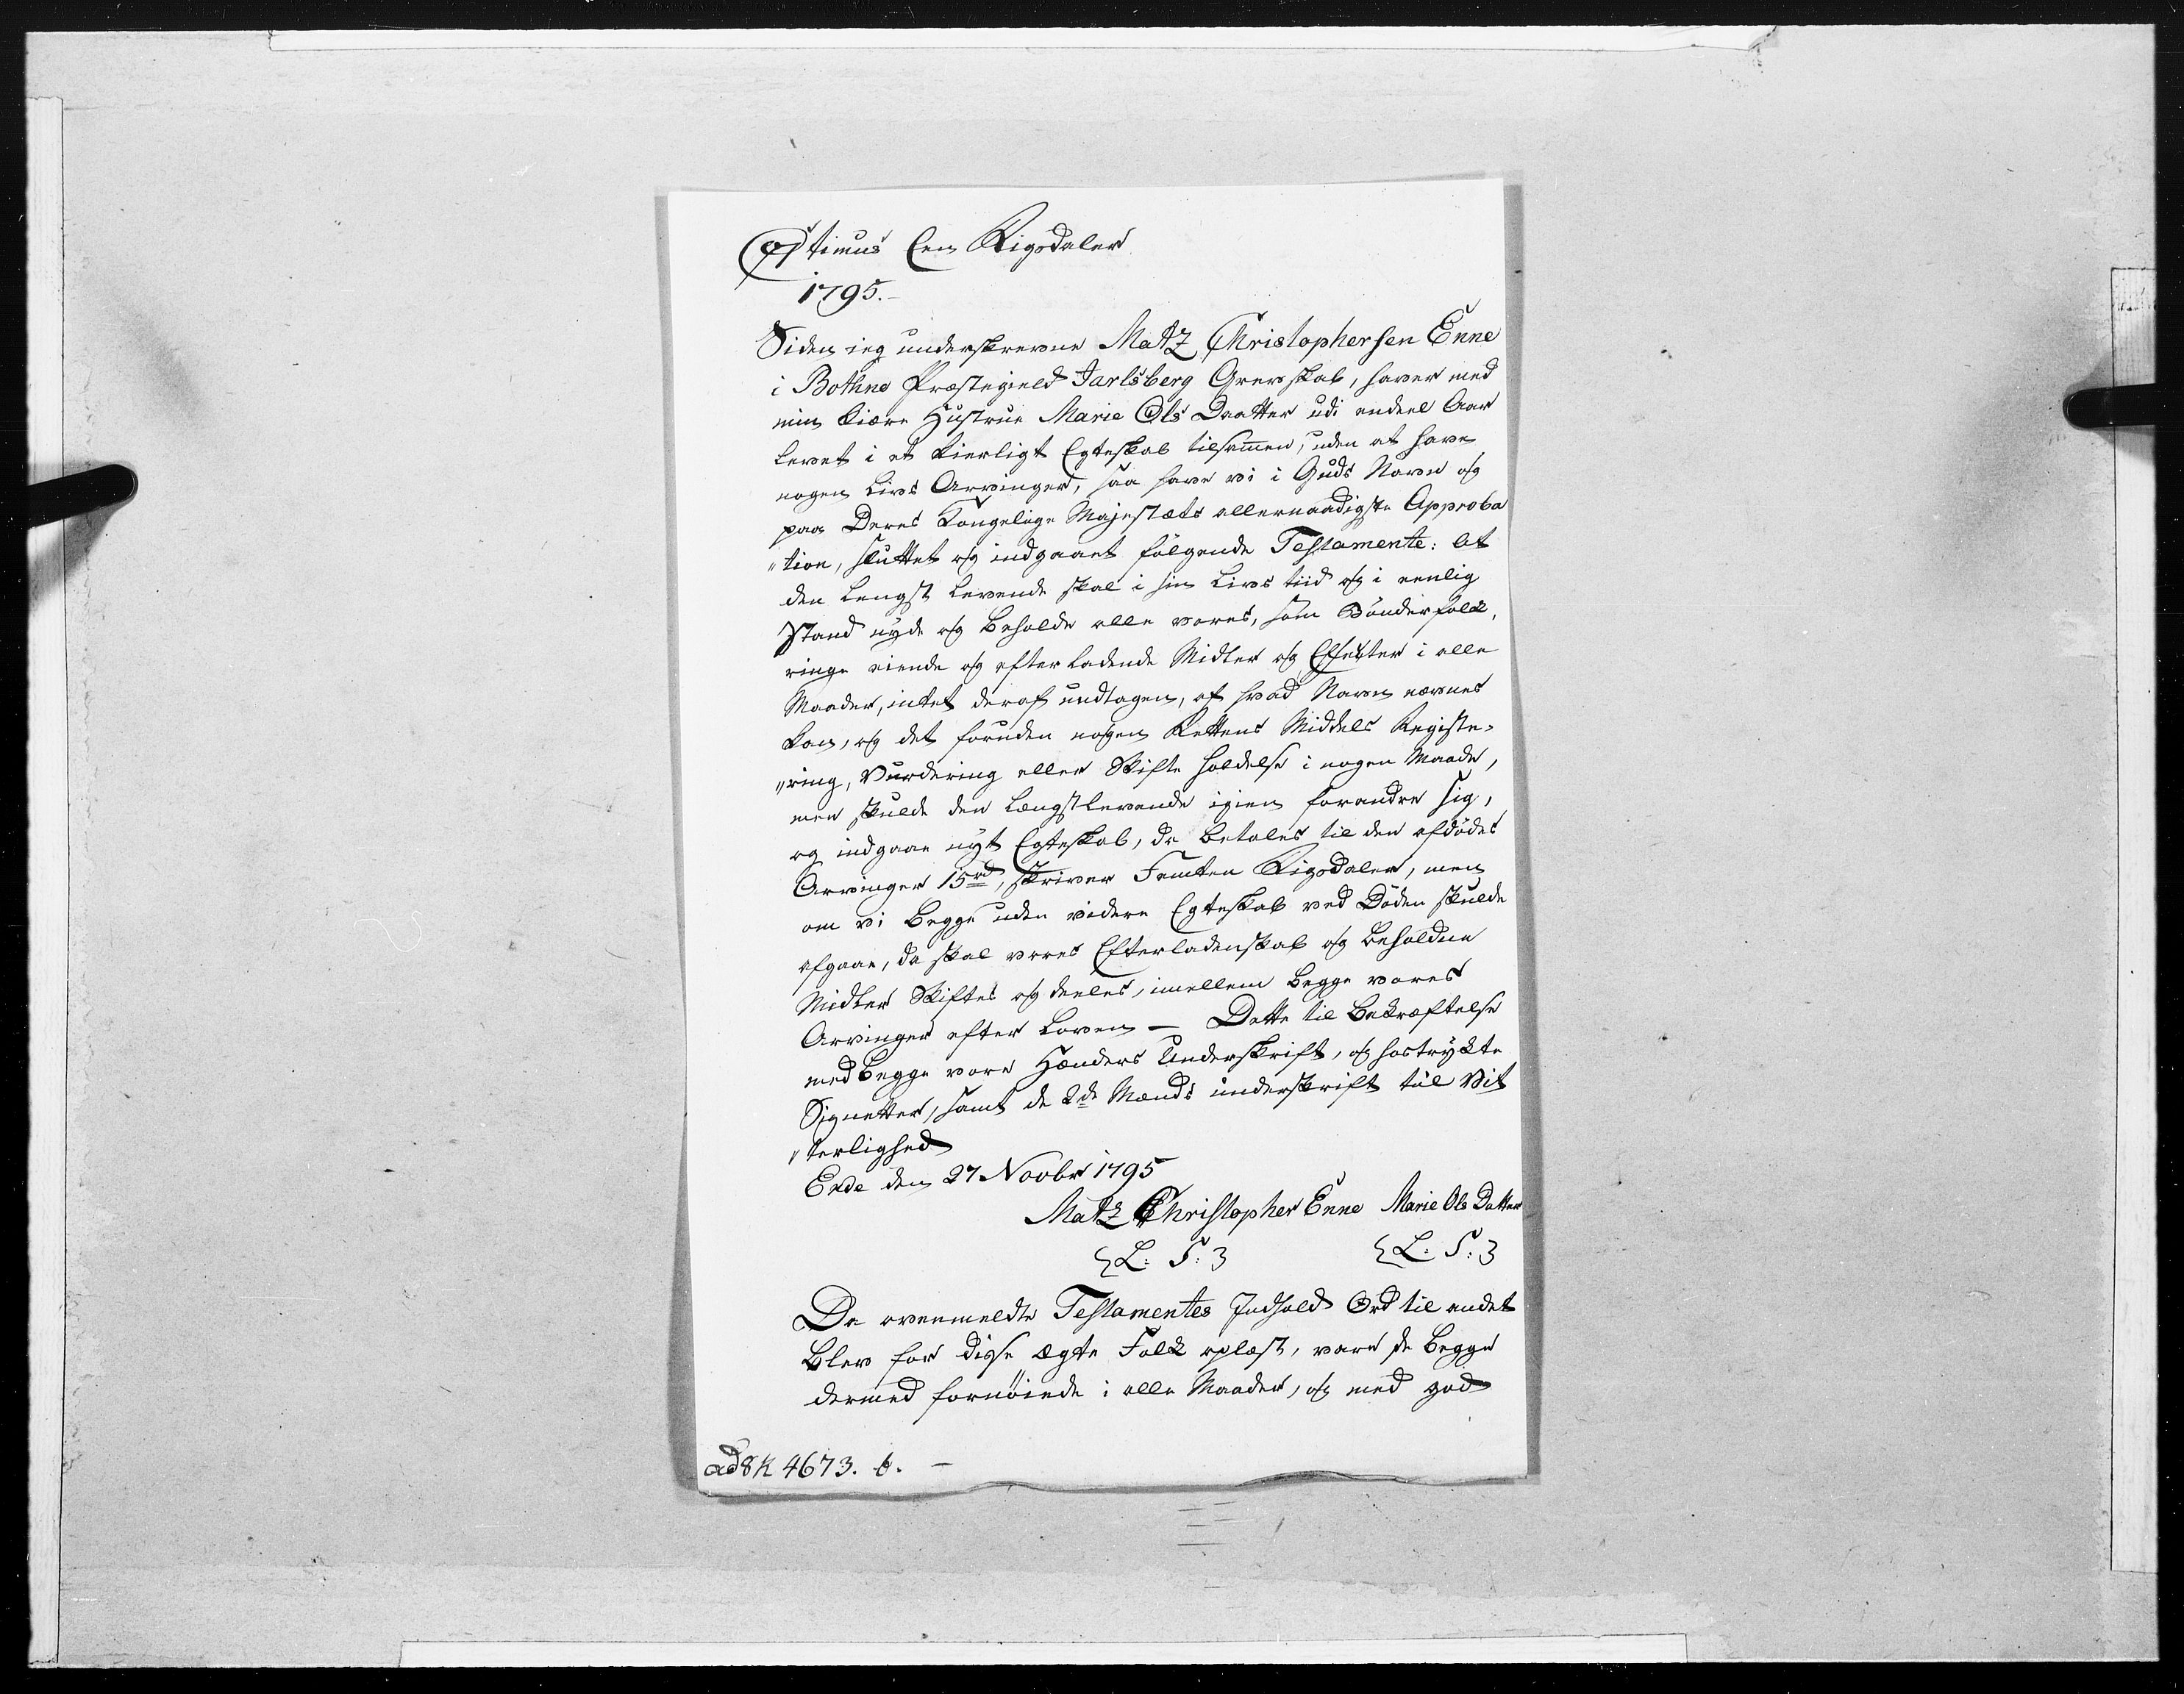 Optimus Een Rigsdaler
1795.
Siden ieg underskrevne Matz Christophersen Enne
i Bothne Præstegield Jarlsberg Grevskab, haver med
min kiære Hustrue Marie Ols Daatter udi endeel Aar
levet i et kierligt Egteskab tilsammen, uden at have
nogen Livs Arvinger, saa have vi i Guds Navn og
paa Deres Kongelige Majestæts allernaadigste Approba
"tion, sluttet og indgaaet følgende Testamente: At
den længst levende skal i sin Livs tiid og i eenlig
Stand nyde og beholde alle vores, som Bønderfolk,
ringe eiende og efterladende Midler og Effecter i alle
Maader, intet deraf undtagen, af hvad Navn nævnes
kan, og det foruden nogen Rettens Middels Registe-
"ring, Vurdering eller Skifte holdelse i nogen Maade,
men skulde den længstlevende igien forandre sig,
og indgaae nyt Egteskab, da betales til den afdødes
Arvinger 15rd, skriver Femten Rigsdaler, men
om vi begge uden videre Egteskab ved Døden skulde
afgaae, da skal vores Efterladenskab og beholdne
Midler Skiftes og deeles, imellem begge vores
Arvinger efter Loven — Dette til Bekræftelse
med begge vore Hænders Underskrift, og hostrykte
Signetter, samt de 2de Mænds underskrift til Vit
"terlighed
Ende den 27 Novbr 1795
Matz Christopher Enne Marie Ols Datter
{L: S:} {L: S:}
Da ovenmeldte Testamentes Indhold Ord til andet
blev for disse ægte Folk oplæst, vare de begge
dermed fornøiede i alle Maader, og med god
ad 8 K 4673. b. —